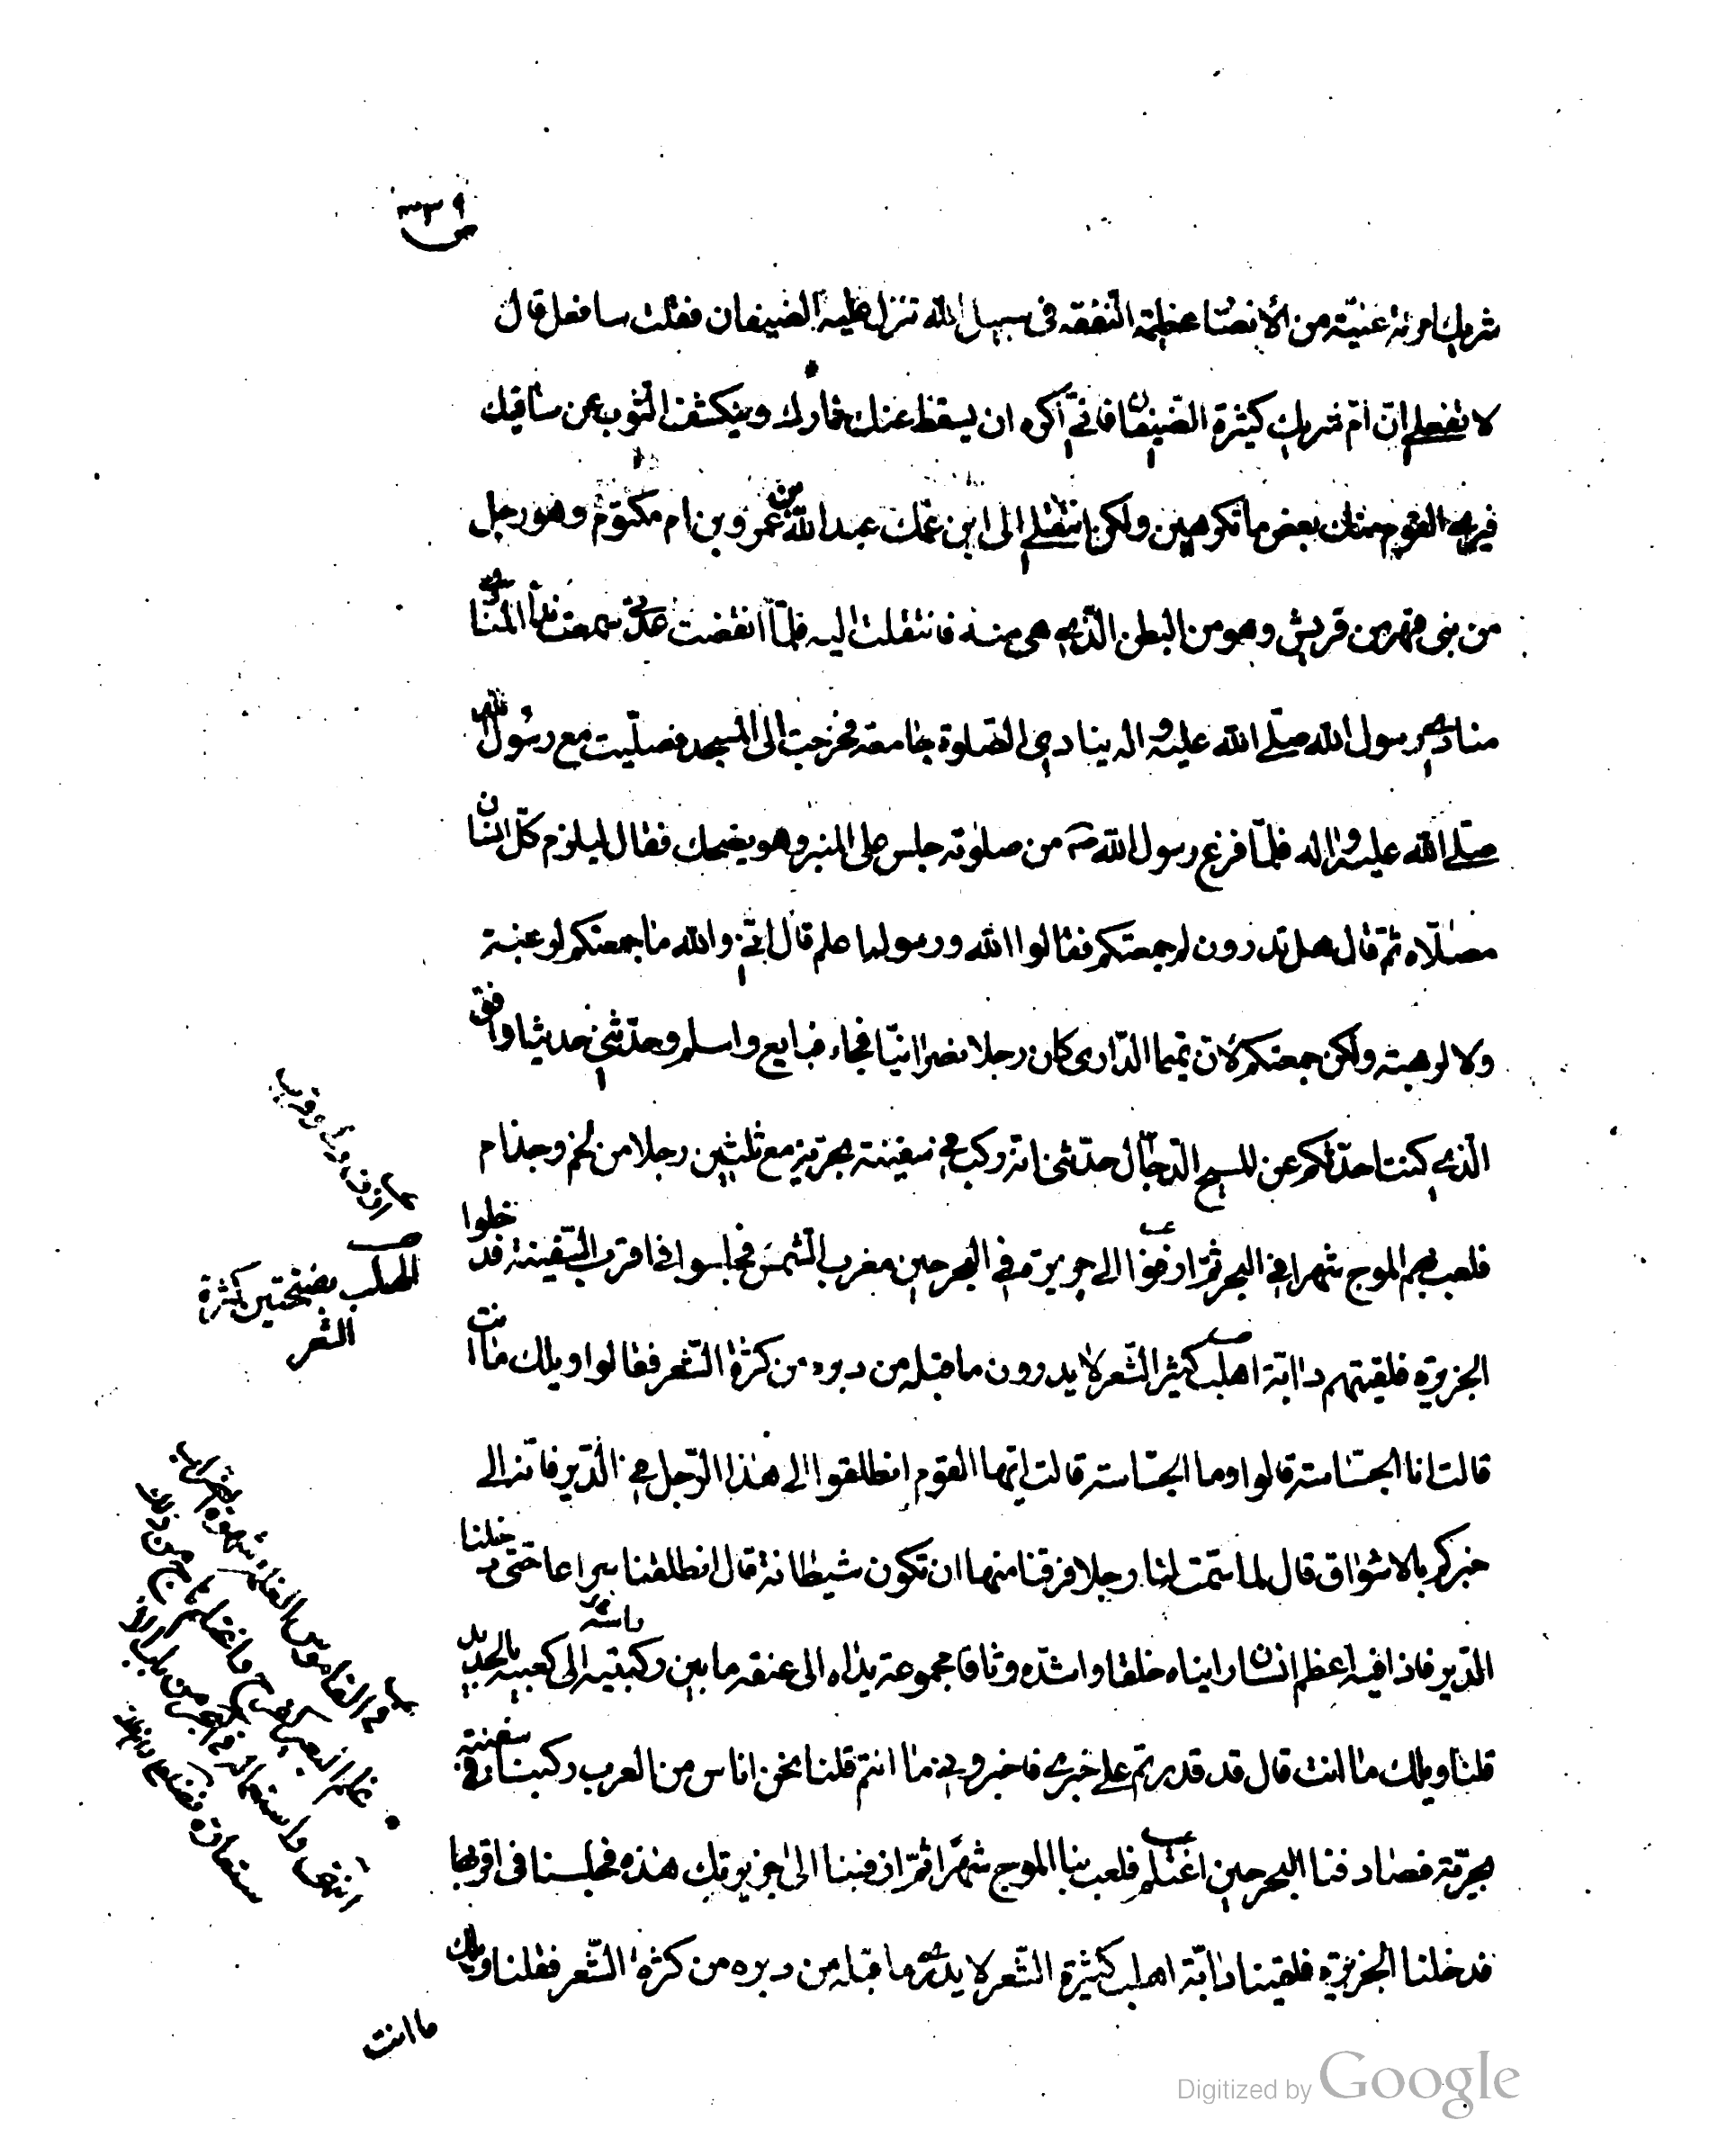 ٣٣٩
شريك امرئة غنيّة من الأنصا عظيمة النّفقه فى سبيل الله تنزل عليه الضيفان فقلت سافعل قال
لا تفعلي انّ امّ شريك كثيرة الضّيفان فانّي اكره ان يسقط عنك خمارك وينكشف الثوب عن ساقيك
فيرى القوم منك بعض ما تكرهين ولكن انتقلي الى ابن عمّك عبد الله بن عمرو بن ام مكتوم وهو رجل
من بنى فهر من قريش وهو من البطن الّذى هى منه فانتقلت اليه فلمّا انقضت عدّتى سمعت نداء المنادى
منادى رسول الله صلّى الله عليه واله ينادى الصّلوة جامعة فخرجت الى المسجد فصلّيت مع رسول الله
صلّى الله عليه واله فلمّا فرغ رسول الله ص من صلوته جلس على المنبر وهو يضحك فقال ليلزم كلّ انسان
مصلّاه ثمّ قال هل تدرون لم جمعتكم فقالوا الله ورسوله اعلم قال انّي والله ما جمعتكم لرغبة
ولا لرهبة ولكن جمعتكم لانّ تميما الدّارى كان رجلا نصرانيّا فجاء فبايع واسلم وحدّثني حديثا وافق
الّذى كنت احدّثكم عن المسيح الدّجّال حدّثنى انه ركب فى سفينة بحريّة مع ثلثين رجلا من لخم وجذام
فلعب بهم الموج شهرا في البحر ثمّ ارفئوا الى جزيرة في البحر حين مغرب الشّمس فجلسوا في اقرب السّفينة فدخلوا
الجزيرة فلقيتهم دابّة اهلب كثير الشّعر لا يدرون ما قبله من دبره من كثرة الشّعر فقالوا ويلك ما انت
قالت انا الجسّاسة قالوا وما الجسّاسة قالت ايّها القوم انطلقوا الى هذا الرّجل فى الدّير فانّه الى
خبركم بالاشواق قال لما سمّت لنا رجلا فرقنا منها ان تكون شيطانة قال انطلقنا سراعا حتّى دخلنا
الدّير فاذا فيه اعظم انسان رايناه خلقا واشدّه وثاقا مجموعة يداه الى عنقه ما بين ركبتيه الى كعبيه بالحديد
قلنا ويلك ما انت قال قد قدرتم على خبرى فاخبروني ما انتم قلنا نحن اناس من العرب ركبنا في سفينة
بحريّة فصادفنا البحر حين اغتلم فلعب بنا الموج شهرا ثمّ ارفئنا الى جزيرتك هذه فجلسنا فى اقربها
فدخلنا الجزيرة فلقينا دابّة اهلب كثيرة الشّعر لا يدرى ما قبله من دبره من كثرة الشّعر فقلنا ويلك
ما انت
الهلب بفتحتين كثرة
الشعر